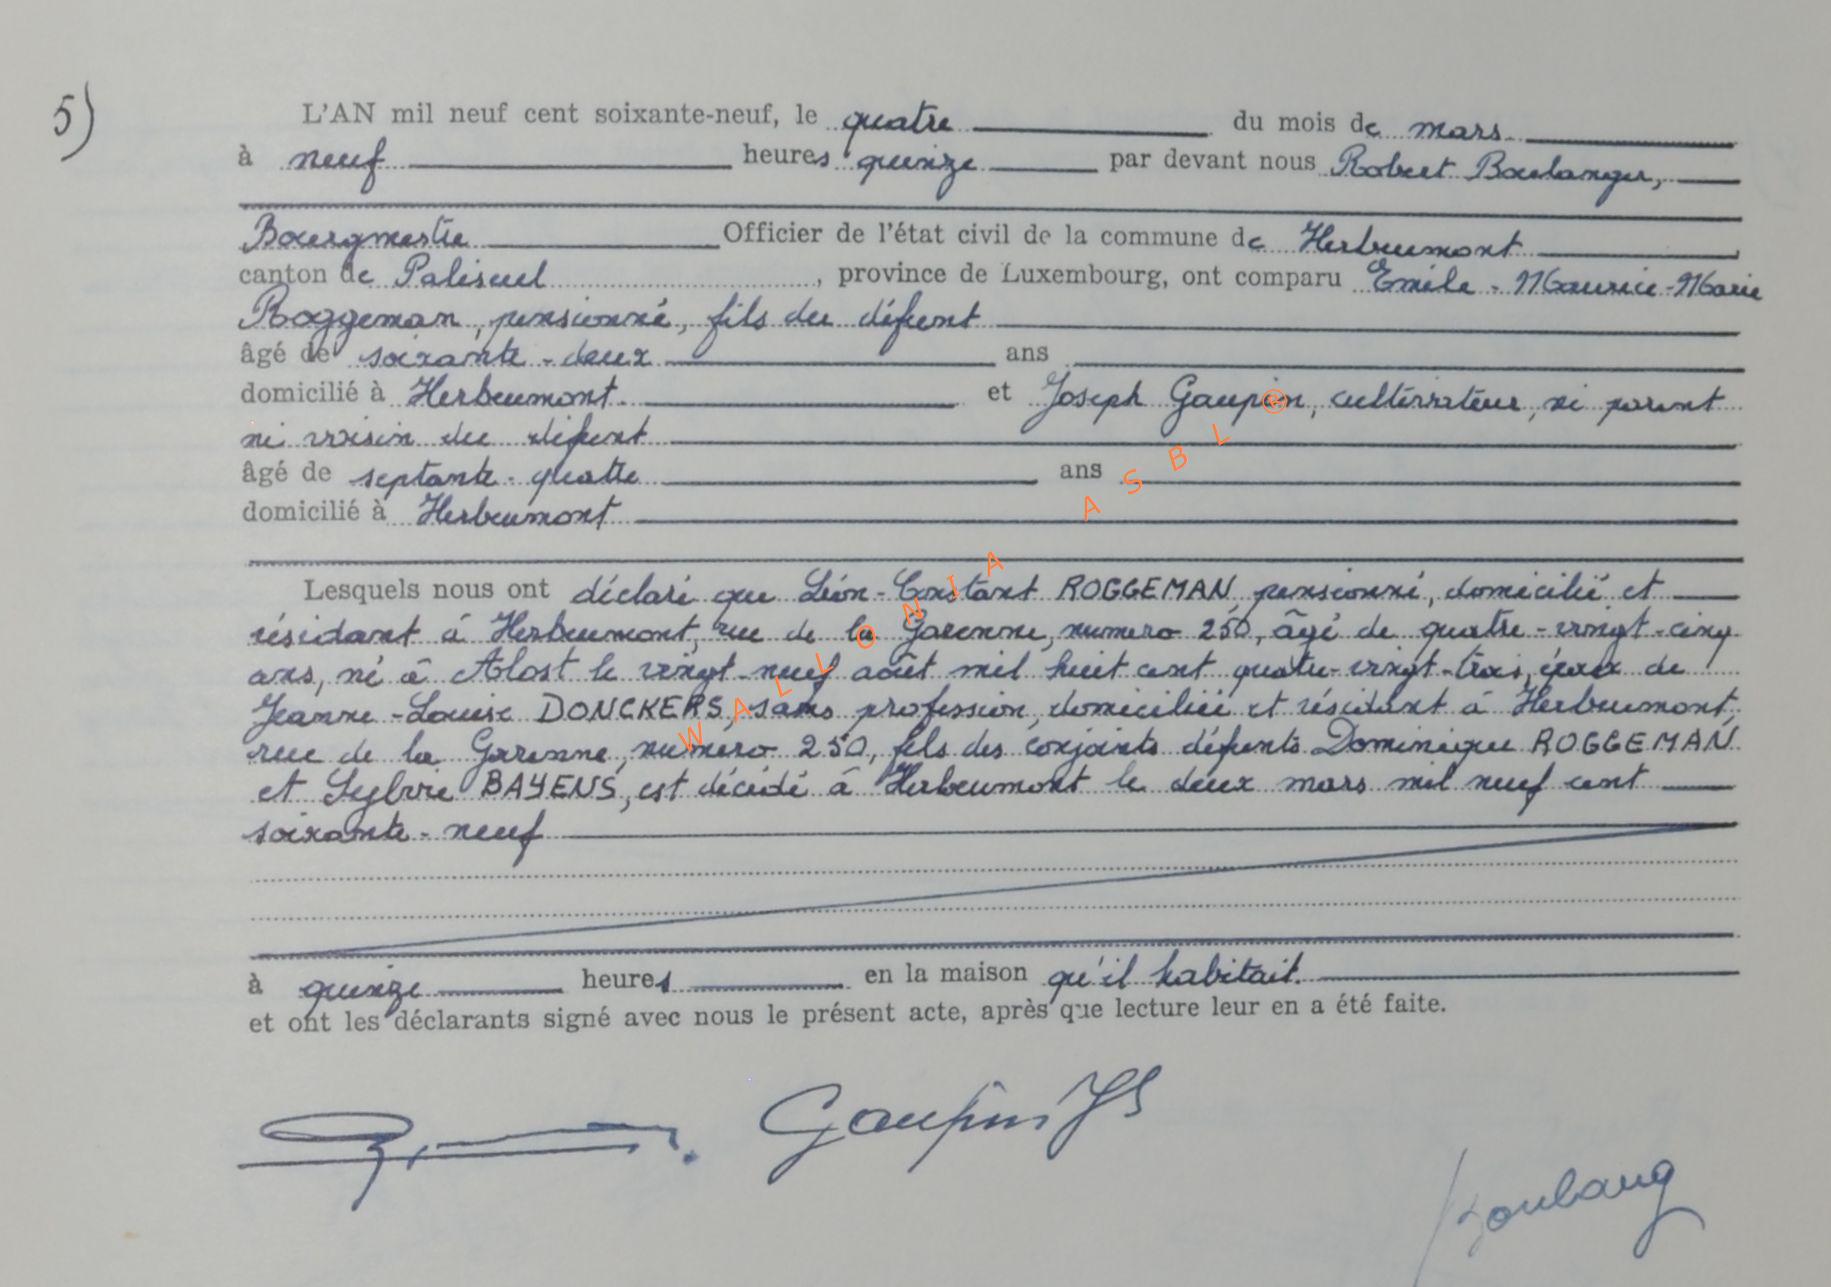 5)
L'AN mil neuf cent soixante-neuf, le quatre du mois de mars
à neuf heures quinze par devant nous Robert Boulanger,
Bourgmestre Officier de l'état civil de la commune de Herbeumont
canton de Paliseul, province de Luxembourg, ont comparu Emile-Maurice-Marie
Roggeman, pensionné, fils du défunt
âgé de soixante-deux ans
domicilié à Herbeumont et Joseph Gaupin, cultivateur, ni parent
ni voisin du défunt
âgé de septante-quatre ans
domicilié à Herbeumont
Lesquels nous ont déclaré que Léon-Constant ROGGEMAN, pensionné, domicilié et
résidant à Herbeumont, rue de la Garenne, numéro 250, âgé de quatre-vingt-cinq
ans, né à Alost le vingt-neuf août mil huit cent quatre-vingt-trois, époux de
Jeanne-Louise DONCKERS, sans profession, domiciliée et résidant à Herbeumont,
rue de la Garenne, numéro 250, fils des conjoints défunts Dominique ROGGEMAN
et Sylvie BAYENS, est décédé à Herbeumont le deux mars mil neuf cent
soixante-neuf
à quinze heures en la maison qu'il habitait.
et ont les déclarants signé avec nous le présent acte, après que lecture leur en a été faite.
Gaupin Js
Boulang
WALLONIA ASBL ®